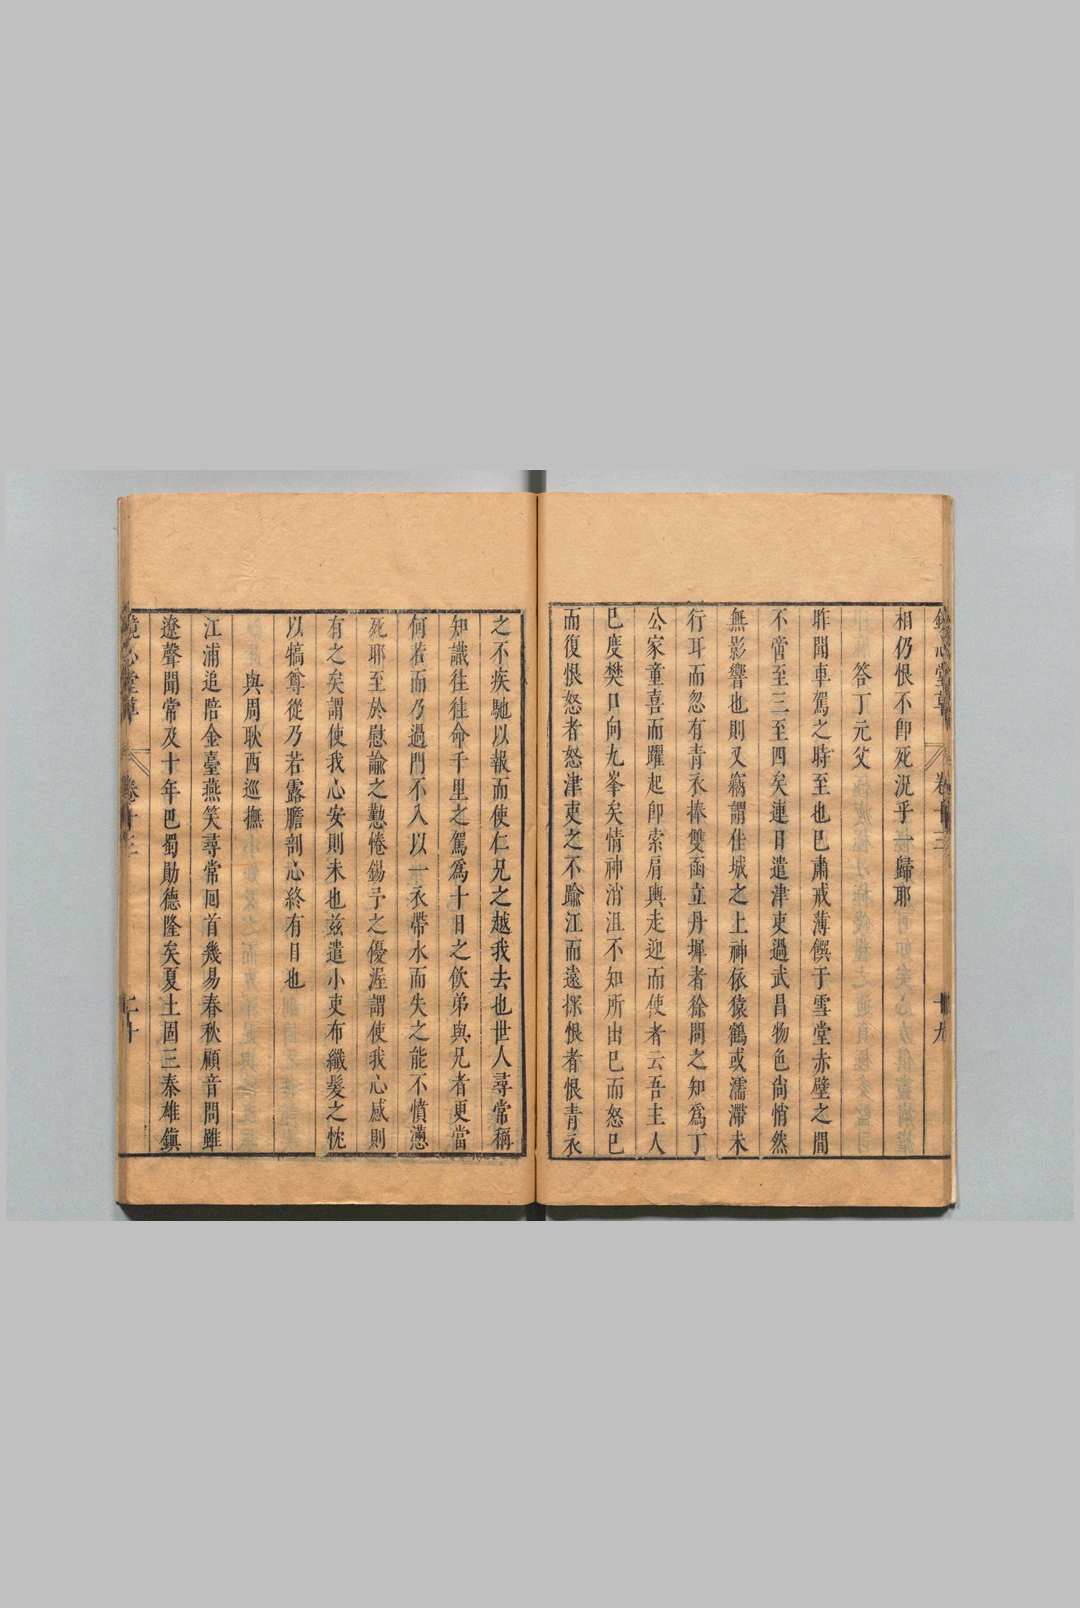 鏡心堂草 卷十三 十九
相仍恨不卽死況乎一歸耶
答丁元父
昨聞車駕之時至也巳肅戒薄饌于雪堂赤壁之間
不啻至三至四矣連日遣津吏過武昌物色尙悄然
無影響也則又竊謂佳城之上神依猿鶴或濡滯未
行耳而忽有青衣捧雙函立丹墀者徐問之知爲丁
公家童喜而躍起卽索肩輿走迎而使者云吾主人
巳度樊口向九峯矣情神消沮不知所出巳而怒巳
而復恨怒者怒津吏之不踰江而遠探恨者恨青衣
之不疾馳以報而使仁兄之越我去也世人尋常稱
知識往往命千里之駕爲十日之飲弟與兄者更當
何若而乃過門不入以一衣帶水而失之能不憤懣
死耶至於慰諭之懃惓錫予之優渥謂使我心感則
有之矣謂使我心安則未也茲遣小吏布纖髮之忱
以犒尊從乃若露膽剖心終有日也
與周耿西巡撫
江浦追陪金臺燕笑尋常回首幾易春秋顧音問雖
遼聲聞常及十年巴蜀勛德隆矣夏土固三秦雄鎭
鏡心堂草 卷十三 二十